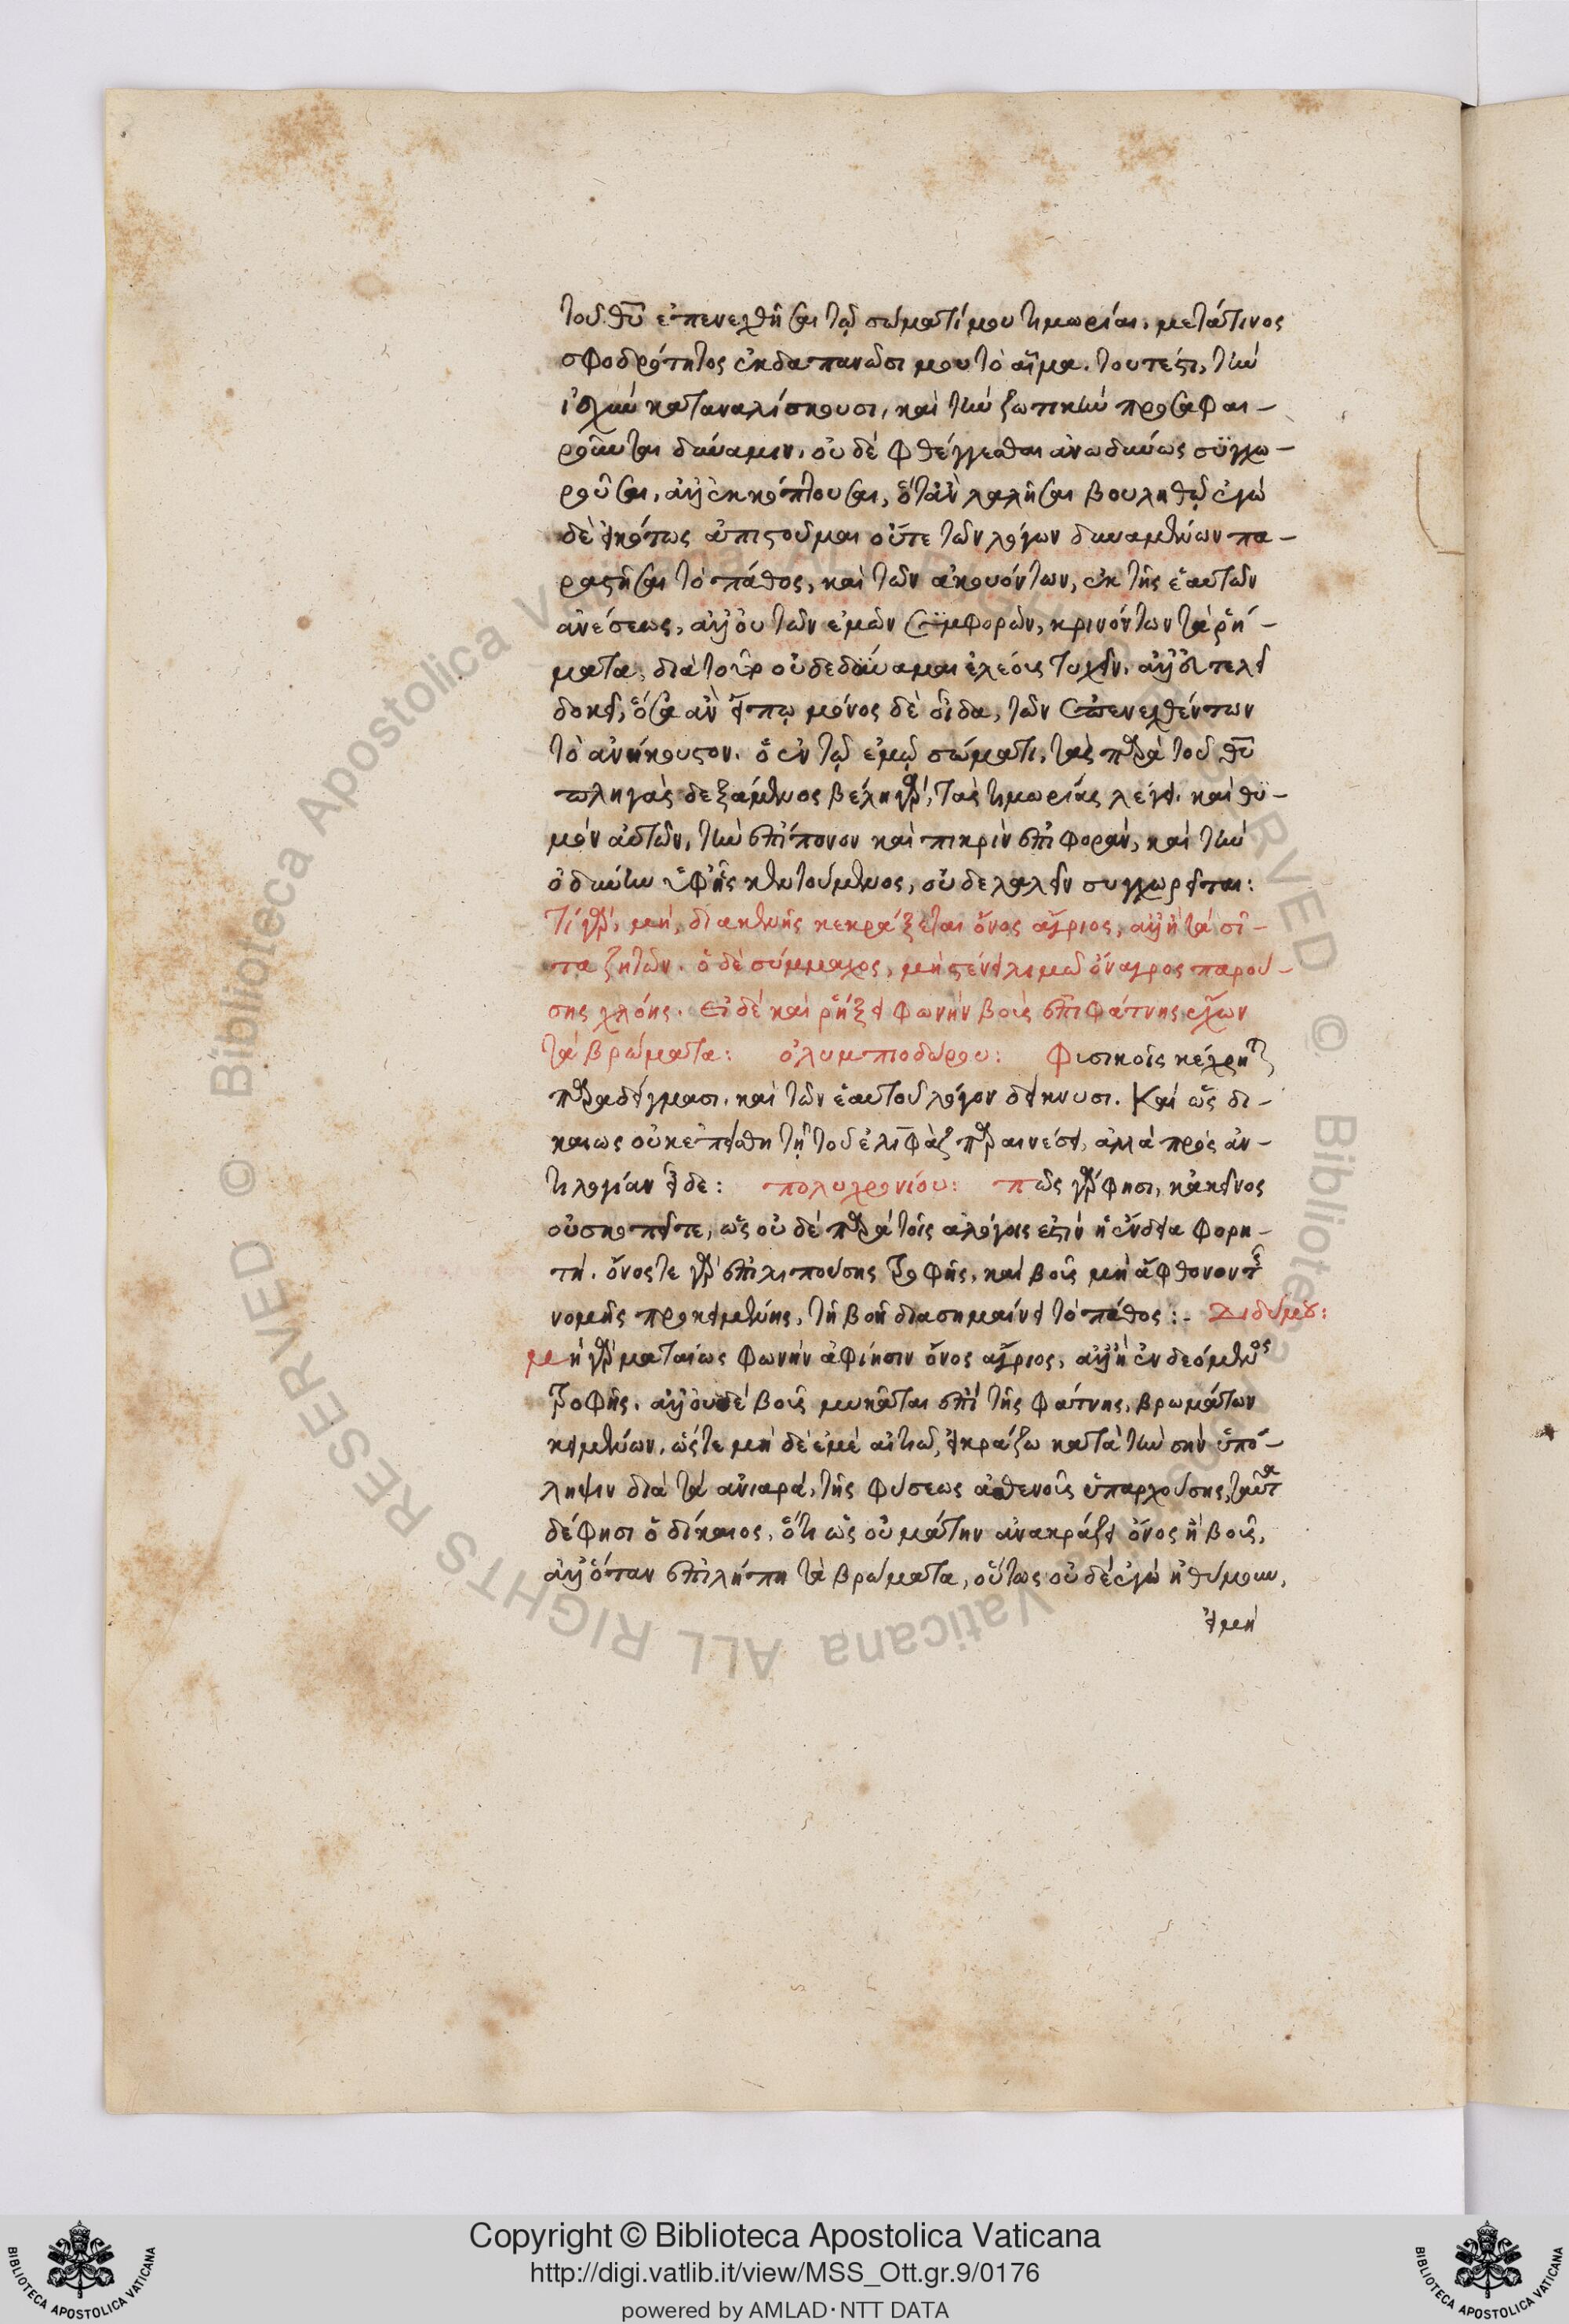 τοῦ θῦ ἐπενεχθῆσαι τῷ σώματί μου τιμωρίαι, μετά τινος
σφοδρότητος ἐκδαπανῶσι μου τὸ αἷμα. τουτέστι, τὴν
ἰσχὺν καταναλίσκουσι, καὶ τὴν ζωτικὴν προσαφαι-
ροῦνται δύναμιν. οὐδὲ φθέγγεσθαι ἀνωδύνως συγχω-
ροῦσαι, ἀλλ' ἐκκόπτουσαι, ὅταν λαλῆσαι βουληθῷ ἐγὼ
δὲ εἰκότως ἀπιστοῦμαι οὔτε τῶν λόγων δυναμένων πα-
ραστῆσαι τὸ πάθος, καὶ τῶν ἀκουόντων, ἐκ τῆς ἑαυτῶν
ἀνέσεως, ἀλλ' οὐ τῶν ἐμῶν συμφορῶν, κρινόντων τὰ ῥή-
ματα. διὰ τοῦτο οὐδὲ δύναμαι ἐλέους τυχεῖν. ἀλλ' εὐτελῆ
δοκεῖ, ὅσα ἂν εἴπω μόνος δὲ οἶδα, τῶν ἐπενεχθέντων
τὸ ἀνήκουστον. ὁ ἐν τῷ ἐμῷ σώματι, τὰς παρὰ τοῦ θῦ
πληγὰς δεξάμενος βέλη γὰρ, τὰς τιμωρίας λέγει. καὶ θυ-
μὸν αὐτῶν, τὴν ἐπίπονον καὶ πικρὰν ἐπιφοράν, καὶ τὴν
ὀδύνην ὑφ' ἧς κεντούμενος, οὐδὲ λαλεῖν συγχωρεῖται:
Τί γὰρ, μὴ, διακενῆς κεκράξεται ὄνος ἄγριος, ἀλλ' ἢ τὰ σῖ-
τα ζητῶν. ὁ δὲ σύμμαχος, μὴ στένει λιμῷ ὄναγρος παρού-
σης χλόης. Εἰ δὲ καὶ ῥήξει φωνὴν βοῦς ἐπὶ φάτνης ἔχων
τὰ βρώματα: ὀλυμπιοδώρου: Φυσικοῖς κέχρηται
παραδείγμασι. καὶ τὸν ἑαυτοῦ λόγον δείκνυσι. Καὶ ὡς δι-
καιως οὐκ ἐπείσθη τῇ τοῦ ἐλιφὰζ παραινέσει, ἀλλὰ πρὸς ἀν-
τιλογίαν εἶδε: πολυχρονίου: πῶς γάρ φησι, κἀκεῖνος
οὐ σκοπεῖτε, ὡς οὐδὲ παρὰ τοῖς ἀλόγοις ἐστὶν ἡ ἔνδεια φορη-
τή. ὄνος τε γὰρ ἐπιλιπούσης τροφῆς, καὶ βοῦς μὴ ἄφθονον τῆς
νομῆς προκειμένης, τῇ βοῇ διασημαίνει τὸ πάθος:- Διδύμου:
μὴ γὰρ ματαίως φωνὴν ἀφίησιν ὄνος ἄγριος, ἀλλ' ἢ ἐνδεόμενος
τροφῆς. ἀλλ' οὐδὲ βοῦς μυκᾶται ἐπὶ τῆς φάτνης, βρωμάτων
κειμένων. ὥστε μὴ δὲ ἐμὲ αἰτιῶ, εἰ κράζω κατὰ τὴν σὴν ὑπό-
ληψιν διὰ τὰ ἀνιαρά, τῆς φύσεως ἀσθενοῦς ὑπαρχούσης, ταῦτα
δέ φησι ὁ δίκαιος, ὅτι ὡς οὐ μάτην ἀνακράξει ὄνος ἢ βοῦς,
ἀλλ' ὅταν ἐπιλήπῃ τὰ βρώματα, οὕτως οὐδὲ ἐγὼ ἠθύμουν,
εἰ μὴ
Copyright © Biblioteca Apostolica Vaticana
http://digi.vatlib.it/view/MSS_Ott.gr.9/0176
powered by AMLAD·NTT DATA